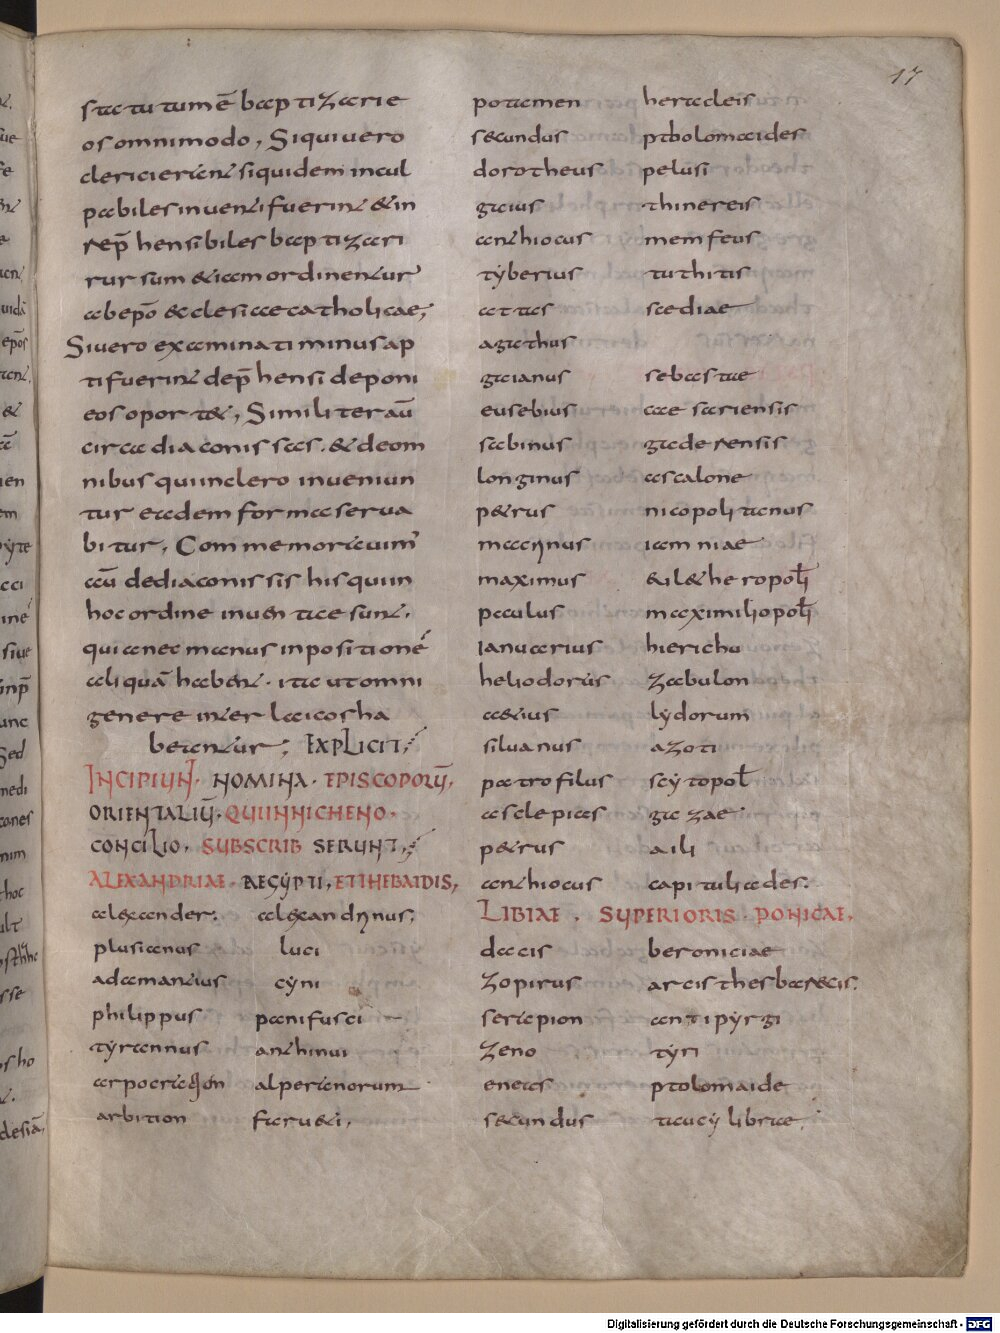 17
statutum ē baptizari e
os omnimodo, Si qui vero
clerici erant siquidem incul
pabiles inventi fuerint & in
rep̄hensibiles baptizati
rursum & iam ordinentur
ab ep̄o ecclesiae catholicae;
Si vero examinati minus ap
ti fuerint dep̄hensi deponi
eos oportet, Similiter aū
circa diaconissas. & de om
nibus qui in clero inveniun
tur eadem forma serva
bitur, Commemoravim'
aū de diaconissis his qui in
hoc ordine inventae sunt.
qui nec manus inpositionē
aliquā habent. ita ut omni
genere inter laicos ha
bentur; EXPLICIT;
INCIPIUNT. NOMINA. EPISCOPORŪ,
ORIENTALIŪ. QUI IN NICHENO.
CONCILIO. SUBSCRIBSERUNT;
ALEXANDRIAE. AEGYPTI, ET THEBAIDIS,
alexander. alexandrinus.
plusianus luci
adamantius cyni
philippus panifusci
tyrannus anthinui
arpocration alperianorum
arbition farueti.
potamen heracleis
secundus ptholomaides
dorotheus pelusi
gaius thinereis
anthiocus memfeus
tyberius tuthitis
attas saediae
agathus
gaianus sebastae
eusebius caesariensis
sabinus gaderensis
longinus ascalone
petrus nicopolitanus
macrinus iamniae
maximus & iletheropoli
paulus maximiliopoli
ianuarius hiericho
heliodorus zabulon
aetius lydorum
silvanus azoti
patrofilus scytopol
asclepias gazae
petrus aili
anthiocus capituliades.
LIBIAE. SUPERIORIS. PONICAE.
dacis beroniciae
zopirus arcisthesbarecis.
serapion antipyrgi
zeno tyri
eneas ptolomaide
secundus taucy librae.
Digitalisierung gefördert durch die Deutsche Forschungsgemeinschaft - DFG